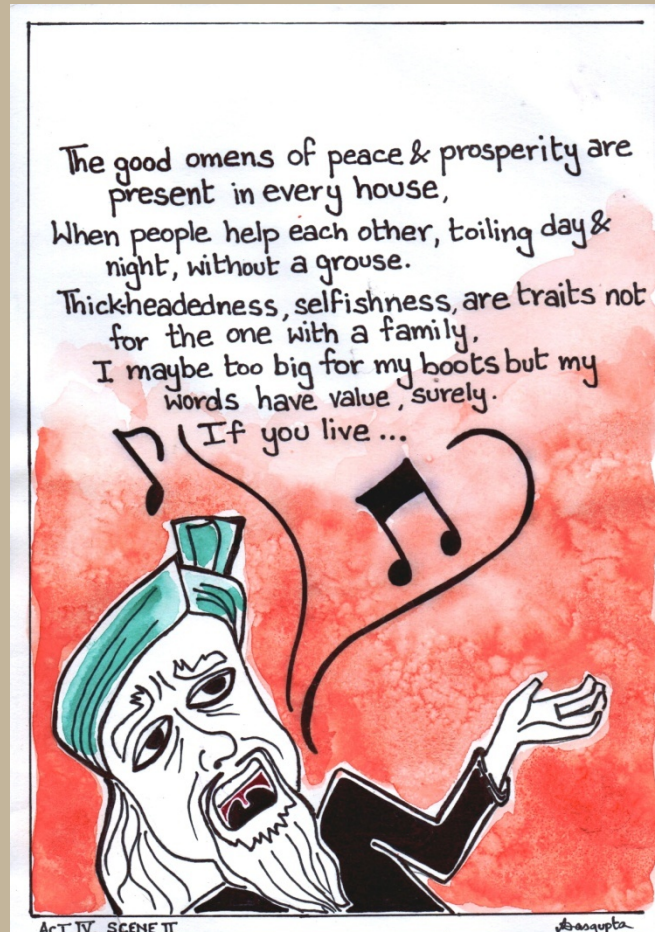 The good omens of peace & prosperity are
present in every house,
When people help each other, toiling day &
night, without a grouse.
Thick-headedness, selfishness, are traits not
for the one with a family,
I maybe too big for my boots but my
words have value, surely.
If you live ...
ACT IV SCENE II
Dasgupta